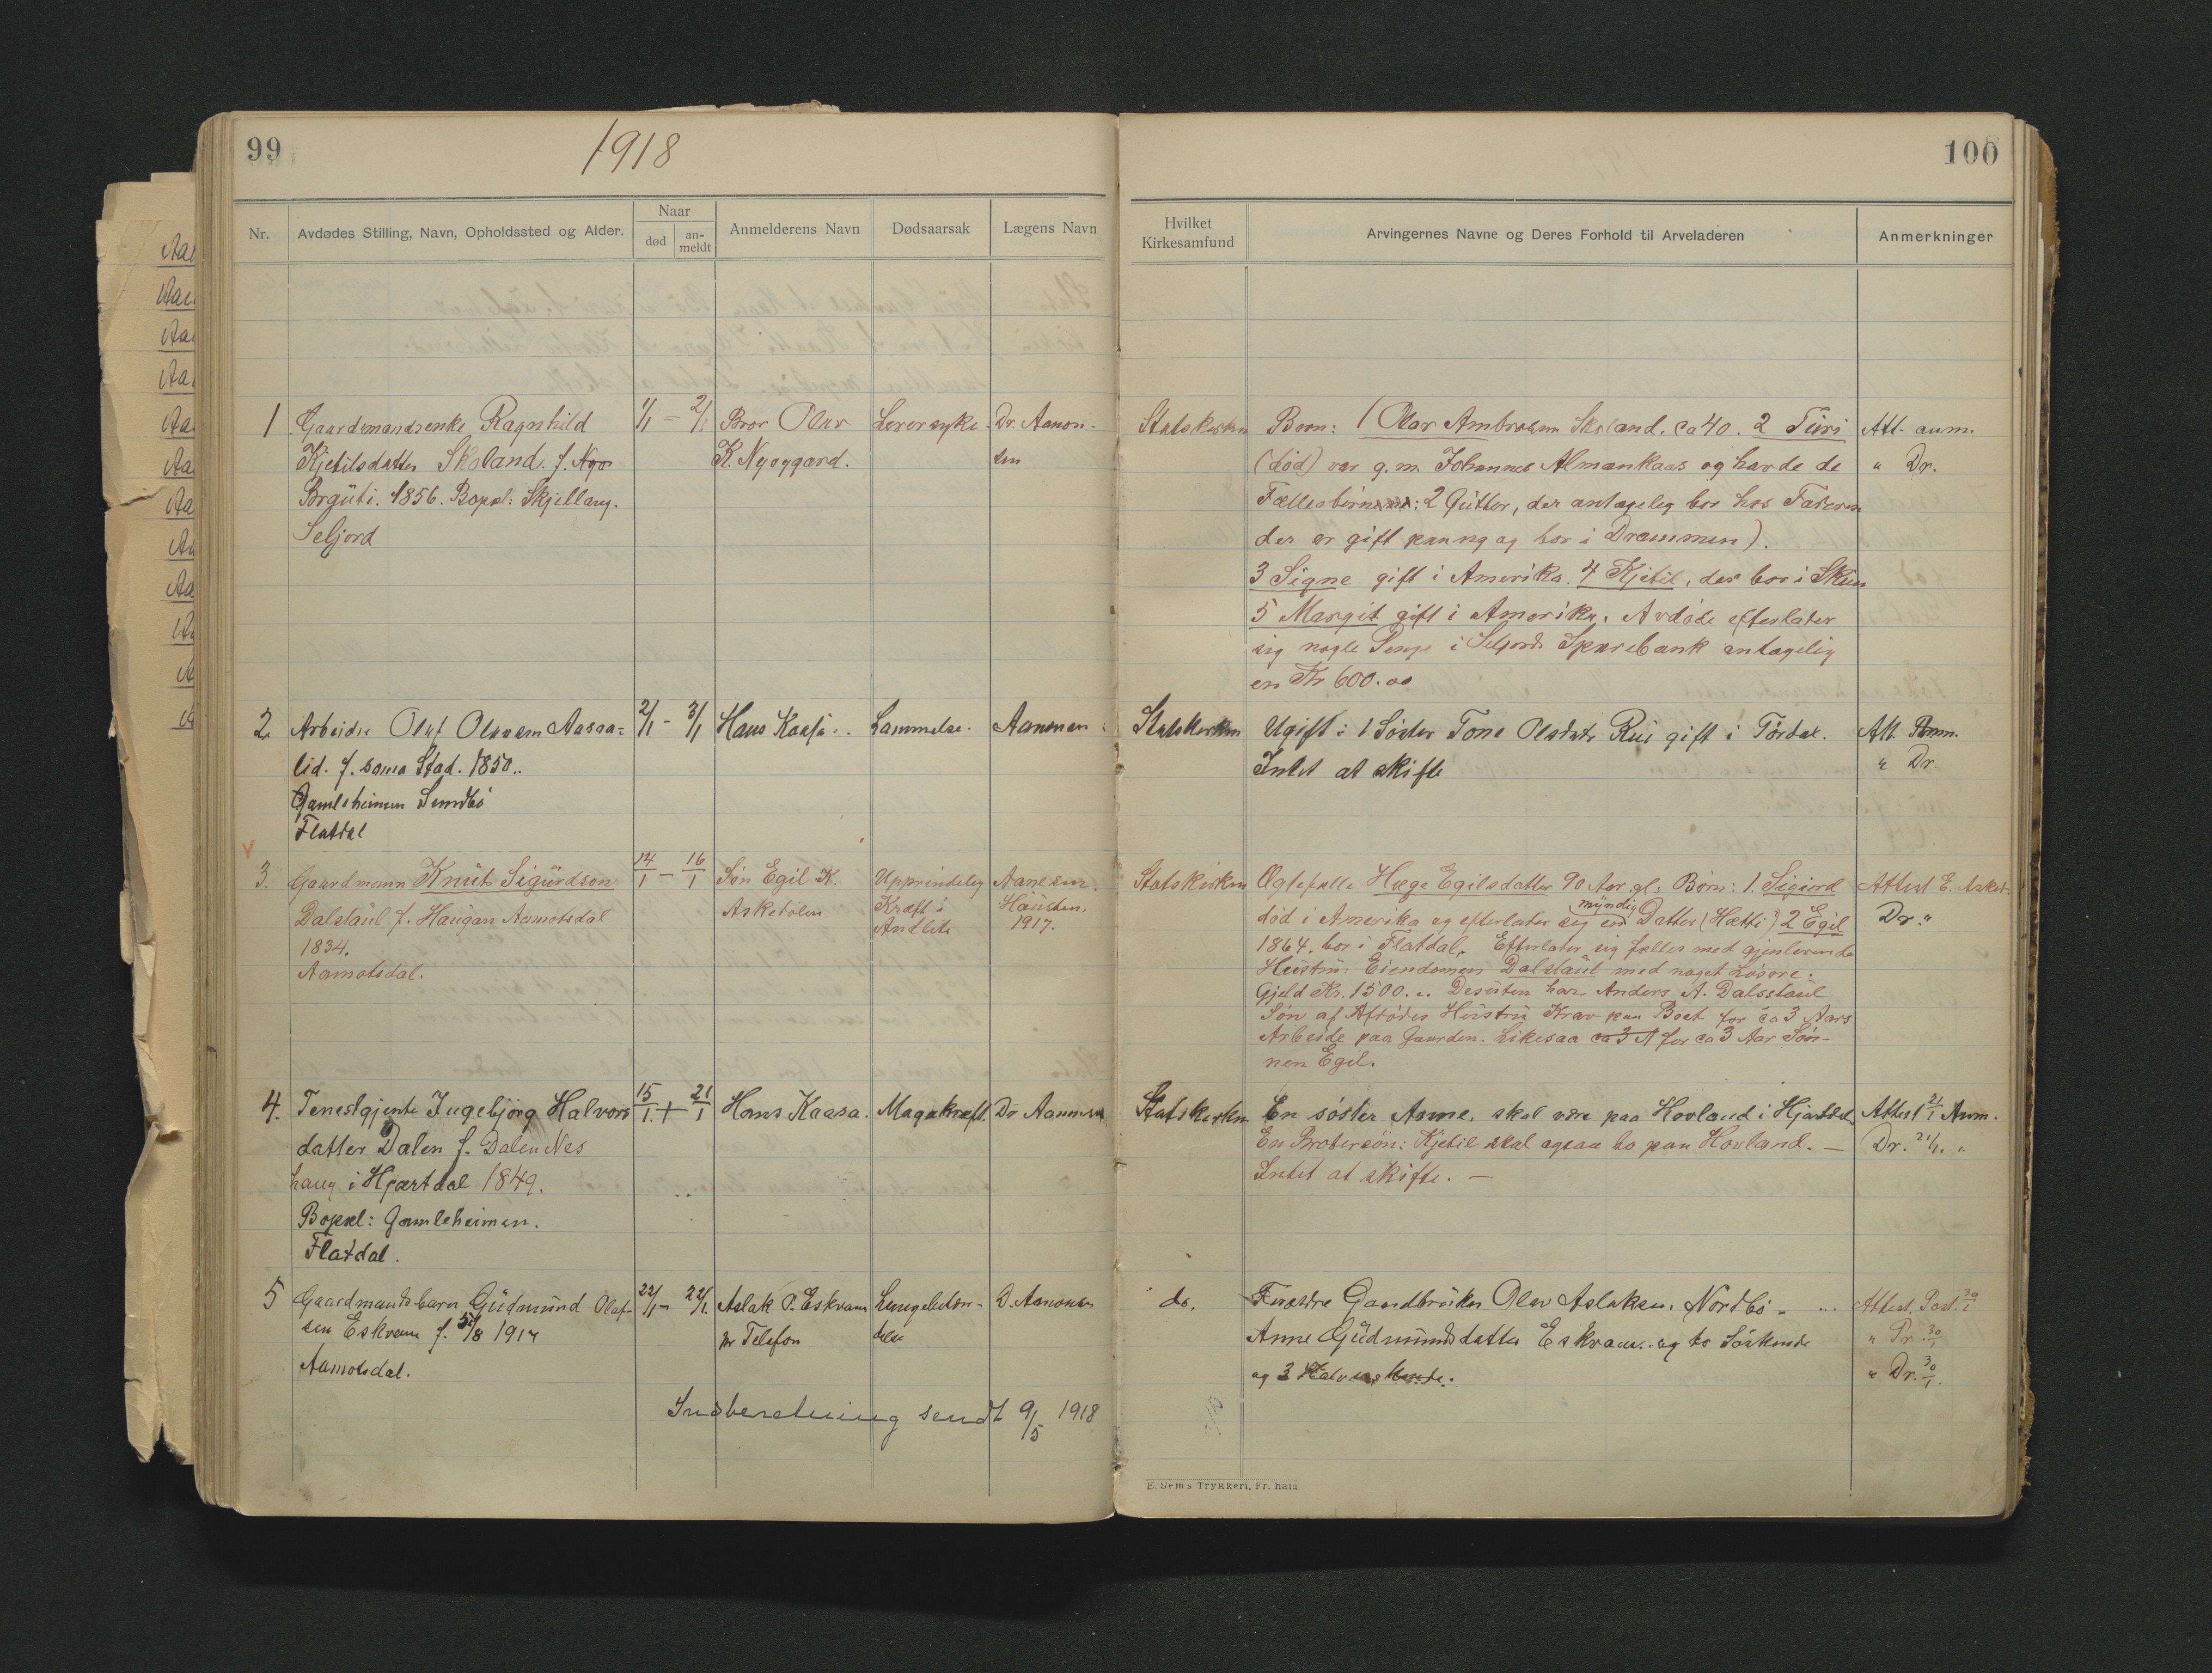 99
1918
Nr.
Avdødes Stilling, Navn, Opholdssted og Alder.
Naar
død
an-
meldt
Anmelderens Navn
Dødsaarsak
Lægens Navn
1
Gaardmandsenke Ragnhild
Kjetilsdatter Skoland. f. Nyo
Brguti. 1856. Bopæl: Skjellaug.
Seljord
1/1 - 2/1
Bror Olav
K. Nyoygard.
Leversyke.
Dr. Aanon-
sen
2
Arbeider Oluf Olavsen Aasaa-
lid. f. sama Stad. 1850..
Gamleheimen Sundbö
Flatdal
2/1 - 3/1
Hans Kaasa..
Lammelse.
Aanonsen
3.
Gaardmann Knut Sigurdson
Dalstaul f. Haugan Aamotsdal
1834.
Aamotsdal.
14/1 - 16/1
Søn Egil K.
Askedalen
Upprindeleg
Kræft i
Andlite
Aanesen.
Hausten.
1917.
4.
Tenestgjente Ingebjörg Halvors
datter Dalen f. Dalen Nes
haug i Hjartdal 1849.
Bopæl: Gamleheimen.
Flatdal.
15/1 + 21/1
Hans Kaasa.
Magakræft.
Dr Aanonsen
5
Gaardmandsbarn Gudmund Olaf-
sen Eskvam f. /8 1917
Aamotsdal.
22/1 - 22/1.
Aslak O. Eskvam
pr Telefon
Lungebeton-
delse
D. Aanonsen
Indberetning sendt 9/5 1918
100
Hvilket
Kirkesamfund
Arvingernes Navne og Deres Forhold til Arveladeren
Anmerkninger
Statskirken
Born: 1 Olav Ambrosen Skoland. ca 40. 2 Turi
(död) var g. m. Johannes Almankaas og havde de
Fællesbörn: 2 Gutter, der antageleg bor hos Faderen
der er gift paany og bor i Drammen).
3 Signe gift i Amerika. 4 Kjetil, der bor i Skien
5 Margit gift i Amerika. Avdöde efterlater
sig nogle Penge i Seljords Sparebank antagelig
en Kr 600.00
Att. anm.
" Dr.
Statskirken
Ugift: 1 Söster Tone Olsdatr Rui gift i Tördal.
Intet at skifte
Att. Anm.
" Dr.
Statskirken
Ægtefælle Hæge Egilsdatter 90 Aar gl: Børn: 1. Sigurd
død i Amerika og efterlater sig en myndig Datter (Hætti) 2 Egil
1864. bor i Flatdal. Efterlater sig fælles med gjenlevende
Hustru: Eiendomen Dalstaul med noget Løsøre.
Gjeld Kr. 1500... Desuten har Anders A. Dalsstaul
Søn af Afdødes Hustru Krav paa Boet for ca 3 Aars
Arbeide paa Gaarden. Likesaa ca 3 A for ca 3 Aar Søn-
nen Egil.
Attest E. Asked.
Dr. "
Statskirken
En söster Anne, skal være paa Hovland i Hjartdal
En Brodersön: Kjetil skal ogsaa bo paa Hovland. —
Intet at skifte. —
Attest 21/1 Anm.
Dr. 21/1. "
do.
Forældre Gaardbruker Olav Aslaksen Nordbö -
Anne Gudmundsdatter Eskvam. og to Söskende
og 3 Halvsöskende.
Attest. Post. 30/1
" Pr. 30/1
" Dr. 30/1.
E. Sem's Trykkeri, Fr.hald